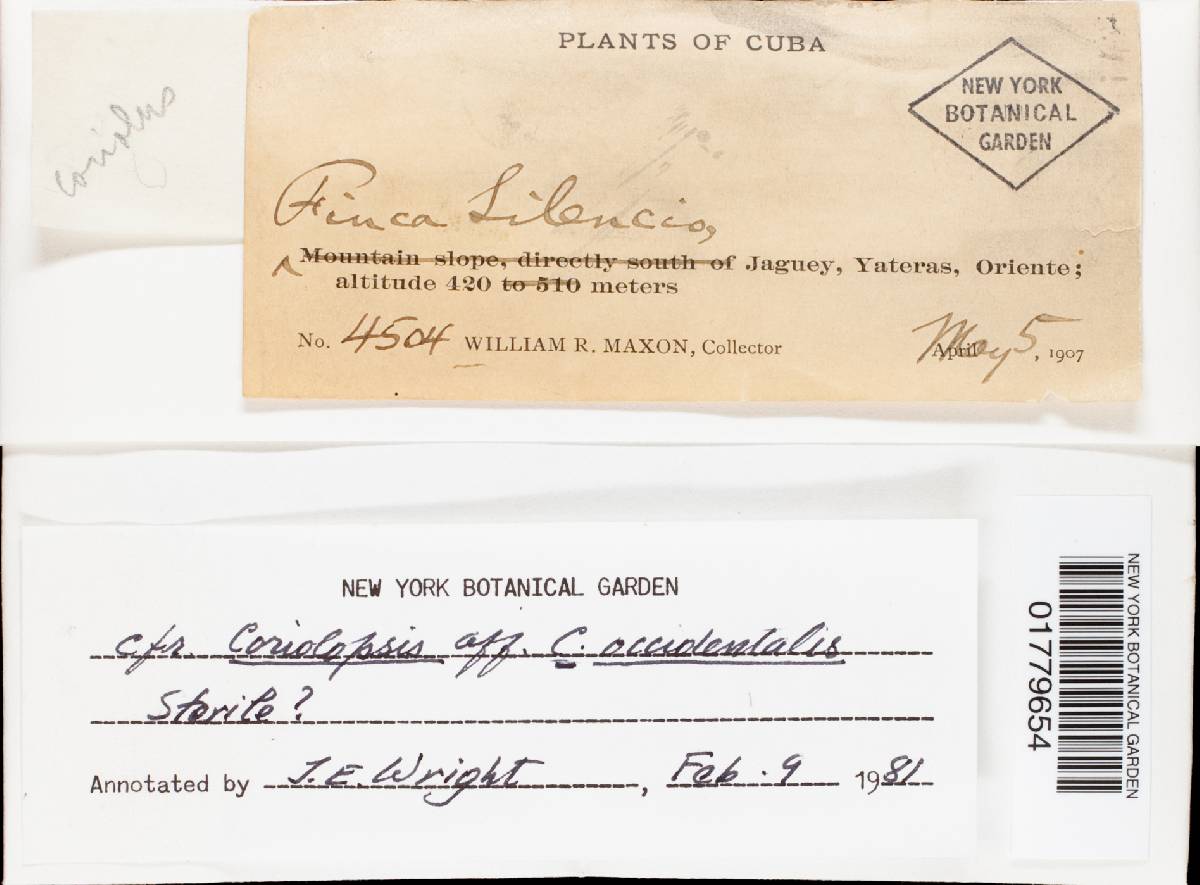 Coriolus
PLANTS OF CUBA
NEW YORK
BOTANICAL
GARDEN
Finca Silencio,
^ Mountain slope, directly south of Jaguey, Yateras, Oriente;
altitude 420 to 510 meters
No. 4504 WILLIAM R. MAXON, Collector
April May 5, 1907
NEW YORK BOTANICAL GARDEN
cfr. Coriolopsis aff. C. occidentalis
Sterile?
Annotated by J.E. Wright, Feb. 9 1981
NEW YORK BOTANICAL GARDEN
01779654